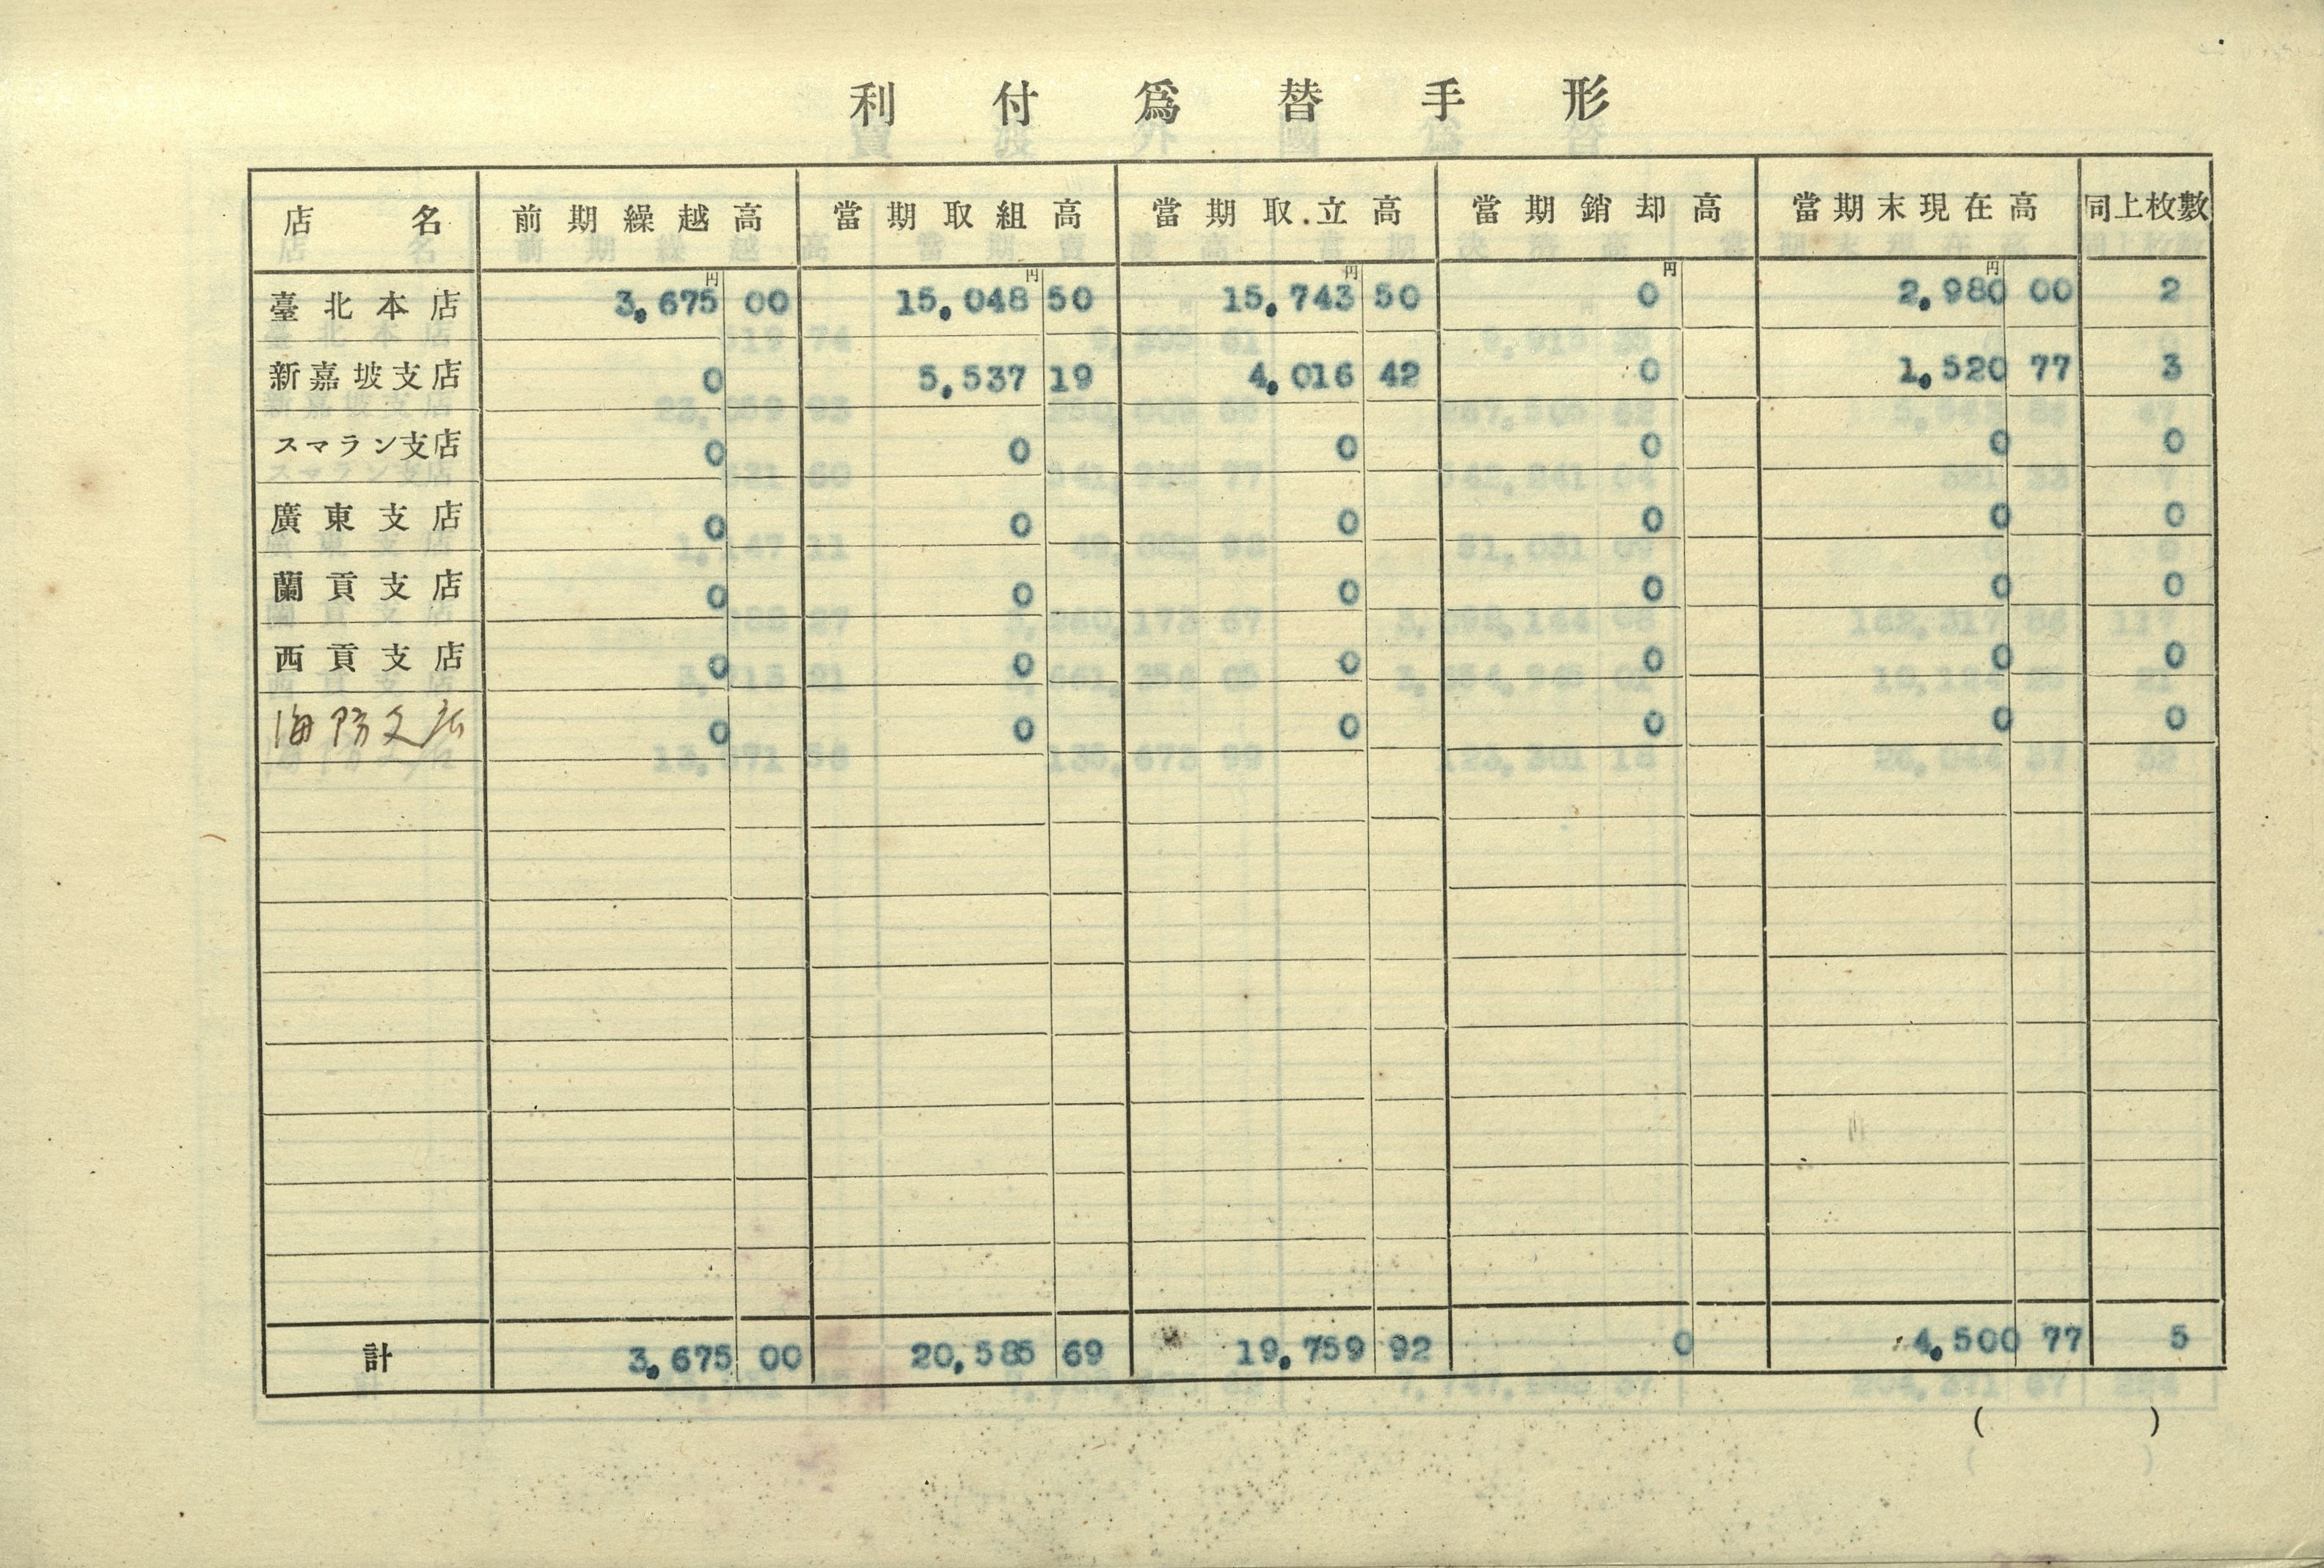 利付爲替手形
店名 前期繰越高 當期取組高 當期取立高 當期銷却高 當期末現在高 同上枚數
円 円 円 円 円
臺北本店 3,675 00 15,048 50 15,743 50 0 2,980 00 2
新嘉坡支店 0 5,537 19 4,016 42 0 1,520 77 3
スマラン支店 0 0 0 0 0 0
廣東支店 0 0 0 0 0 0
蘭貢支店 0 0 0 0 0 0
西貢支店 0 0 0 0 0 0
海防支店 0 0 0 0 0 0
計 3,675 00 20,585 69 19,759 92 0 4,500 77 5
( )